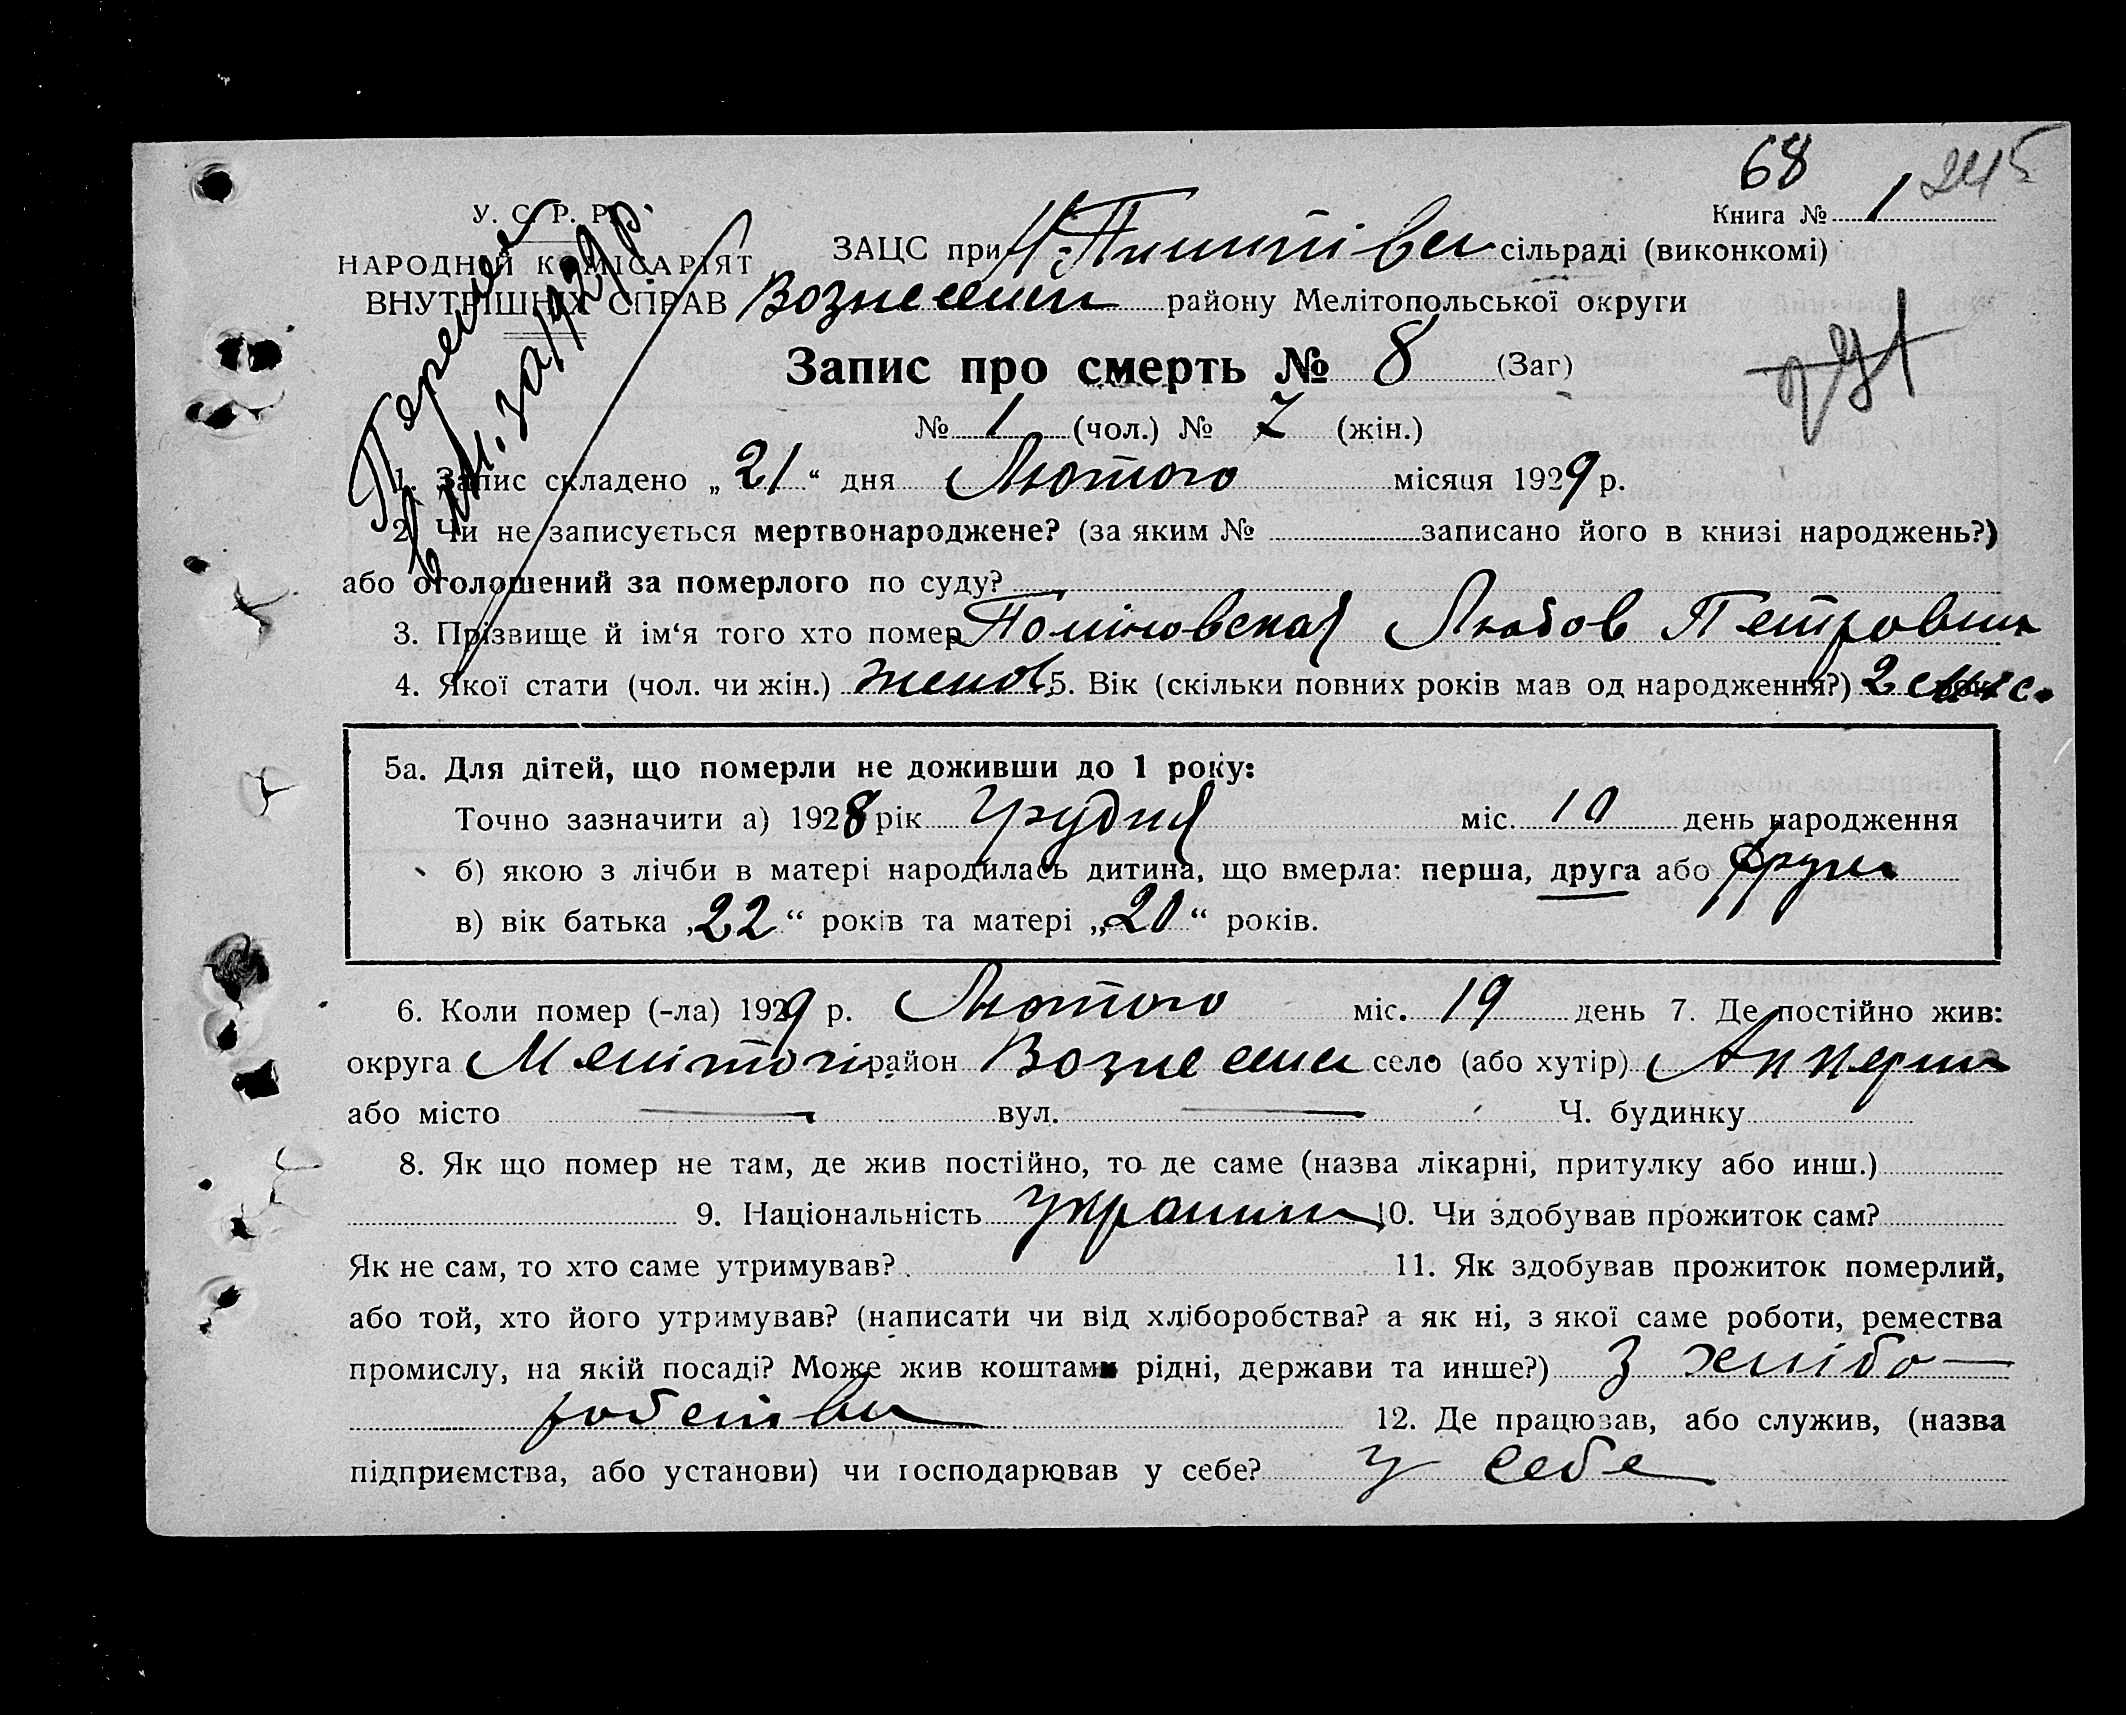 68
245
Книга № 1
У. С. Р. Р.
НАРОДНІЙ КОМІСАРІЯТ
ВНУТРІШНІХ СПРАВ
за 1929 р.
ЗАЦС при сільраді (виконкомі)
Вознесенск району Мелітопольської округи
Запис про смерть № 8 (Заг)
№ 1 (чол.) № 7 (жін.)
1. Запис складено „ 21 “ дня Лютого місяця 1929 р.
2. Чи не записується мертвонароджене? (за яким № записано його в книзі народжень?)
або оголошений за померлого по суду?
3. Прізвище й ім‘я того хто помер Любов Петровна
4. Якої стати (чол. чи жін.) 5. Вік (скільки повних років мав од народження?) 2 міс.
5а. Для дітей, що померли не доживши до 1 року:
Точно зазначити а) 1928 рік Грудня міс. 10 день народження
б) якою з лічби в матері народилась дитина, що вмерла: перша, друга або друга
в) вік батька „ 22 “ років та матері „ 20 “ років.
6. Коли помер (-ла) 1929 р. Лютого міс. 19 день 7. Де постійно жив:
округа Мелітопі район Вознесенск село (або хутір)
або місто — вул. — Ч. будинку
8. Як що помер не там, де жив постійно, то де саме (назва лікарні, притулку або инш.)
9. Національність 10. Чи здобував прожиток сам?
Як не сам, то хто саме утримував? 11. Як здобував прожиток померлий,
або той, хто його утримував? (написати чи від хліборобства? а як ні, з якої саме роботи, ремества
промислу, на якій посаді? Може жив коштами рідні, держави та инше?) З хлібо—
робства 12. Де працював, або служив, (назва
підприємства, або установи) чи господарював у себе? У себе